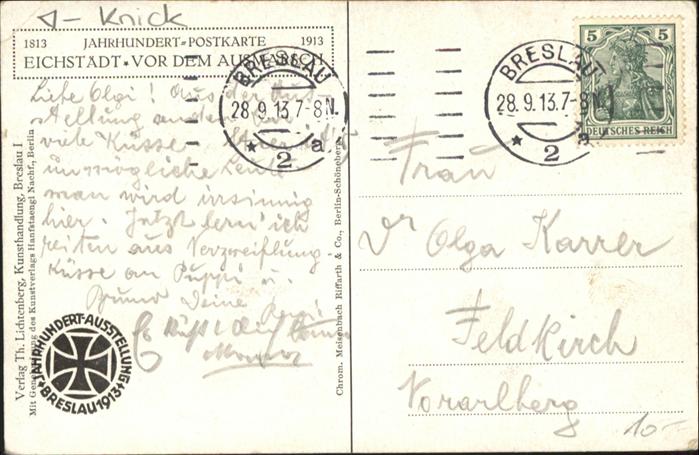 ◁- Knick
1813 JAHRHUNDERT-POSTKARTE 1913
EICHSTÄDT · VOR DEM AUSMARSCH
Liebe Olgi! Aus der Aus-
stellung
viele Küsse
unmögliche Leute
man wird irrsinnig
hier. Jetzt lern' ich
reiten aus Verzweiflung
Küsse an Puppi u.
Bruno Deine
Es küßt
Verlag Th. Lichtenberg, Kunsthandlung, Breslau I
Mit Genehmigung des Kunstverlags Hanfstaengl Nachf., Berlin
JAHRHUNDERT-AUSSTELLUNG
BRESLAU 1913
Chrom. Meisenbach Riffarth & Co., Berlin-Schöneberg
BRESLAU
28.9.13.7-8N.
* 2 a
BRESLAU
28.9.13.7-8N.
* 2 a
5 5
DEUTSCHES REICH
Frau
Dr Olga Karrer
Feldkirch
Vorarlberg
10-